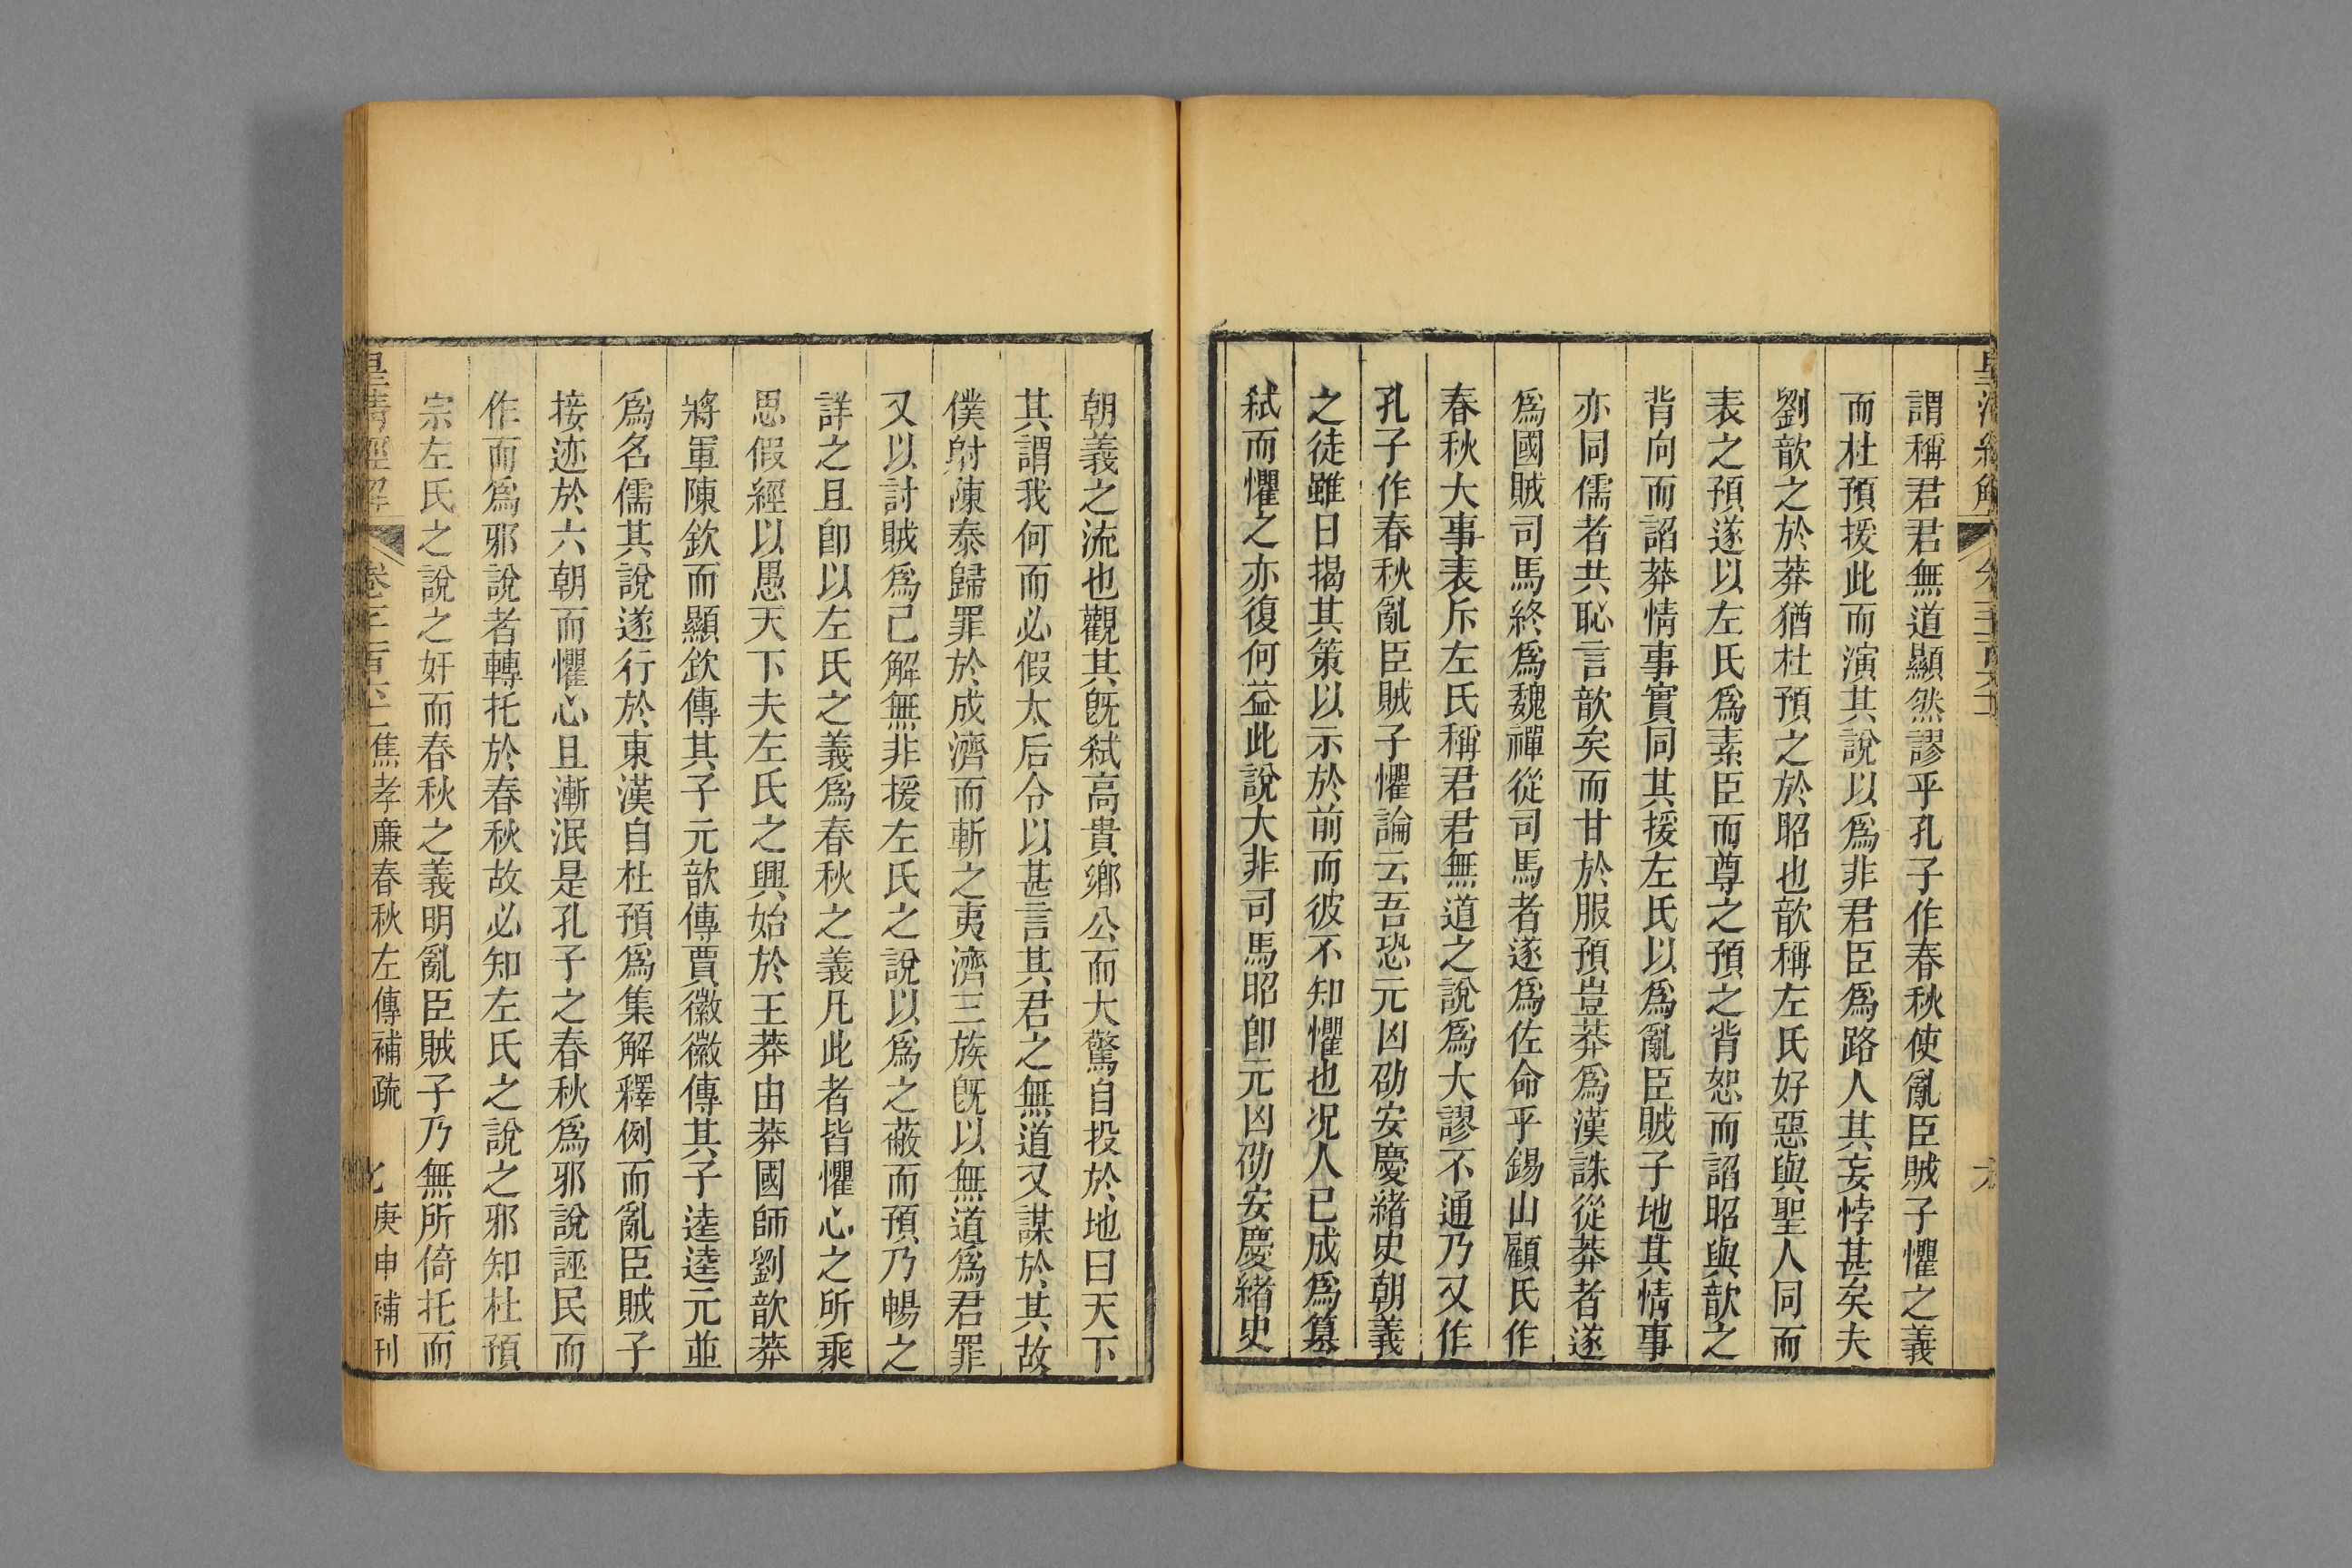 謂稱君君無道顯然謬乎孔子作春秋使亂臣賊子懼之義
而杜預援此而演其說以爲非君臣爲路人其妄悖甚矣夫
劉歆之於莽猶杜預之於昭也歆稱左氏好惡與聖人同而
表之預遂以左氏爲素臣而尊之預之背恕而諂昭與歆之
背向而諂莽情事實同其援左氏以爲亂臣賊子地其情事
亦同儒者共恥言歆矣而甘於服預豈莽爲漢誅從莽者遂
爲國賊司馬終爲魏禪從司馬者遂爲佐命乎錫山顧氏作
春秋大事表斥左氏稱君君無道之說爲大謬不通乃又作
孔子作春秋亂臣賊子懼論云吾恐元凶劭安慶緒史朝義
之徒雖日揭其策以示於前而彼不知懼也况人已成爲篡
弒而懼之亦復何益此說大非司馬昭卽元凶劭安慶緒史
朝義之流也觀其旣弒高貴鄉公而大驚自投於地曰天下
其謂我何而必假太后令以甚言其君之無道又謀於其故
僕射陳泰歸罪於成濟而斬之夷濟三族旣以無道爲君罪
又以討賊爲己解無非援左氏之說以爲之蔽而預乃暢之
詳之且卽以左氏之義爲春秋之義凡此者皆懼心之所乘
思假經以愚天下夫左氏之興始於王莽由莽國師劉歆莽
將軍陳欽而顯欽傳其子元歆傳賈徽徽傳其子逵逵元並
爲名儒其說遂行於東漢自杜預爲集解釋例而亂臣賊子
接迹於六朝而懼心且漸泯是孔子之春秋爲邪說誣民而
作而爲邪說者轉托於春秋故必知左氏之說之邪知杜預
宗左氏之說之奸而春秋之義明亂臣賊子乃無所倚托而
皇清經解 焦孝廉春秋左傳補疏 庚申補刊